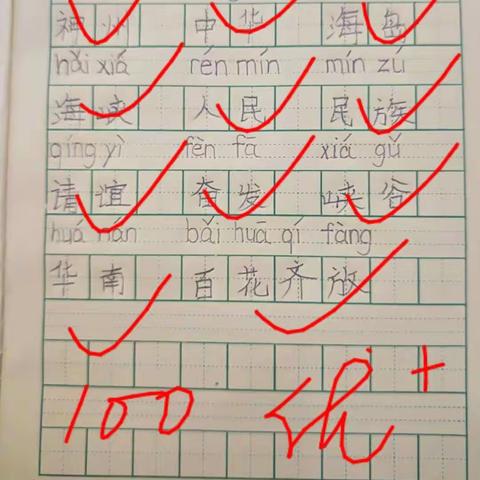 神州 中华 海岛
hǎi xiá rén mín mín zú
海峡 人民 民族
qíng yì fèn fā xiá gǔ
请谊 奋发 峡谷
huá nán bǎi huā qí fàng
华南 百花齐放
100 优+